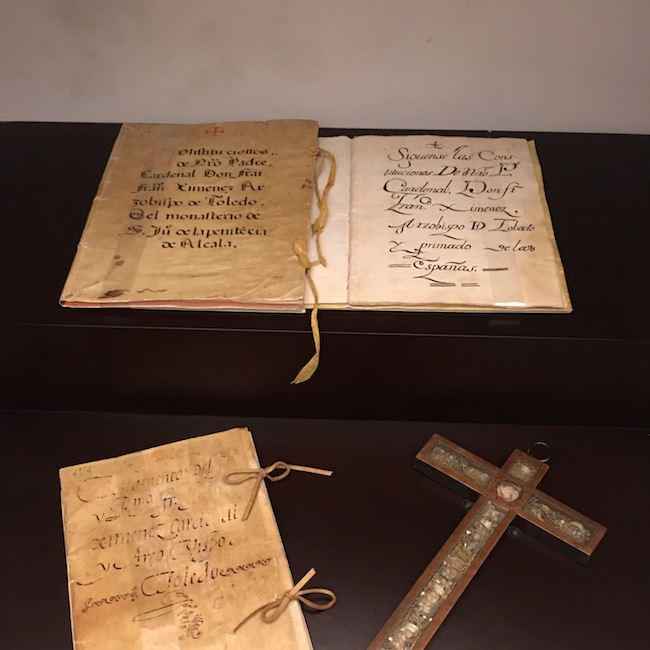 Constituciones.
de Nro Padre.
Cardenal Don frai
Fran Ximenez Ar
zobispo de Toledo.
Del monasterio de
S. Ju de la penitecia
de Alcala.
Siguense las Cons
tituciones De Nro. P.
Cardenal, Don fr.
Franco. Ximenez.
Arzobispo D Toledo
Y primado de las
Españas.
Testamento del
Ximenez
y Arzobispo
Toledo